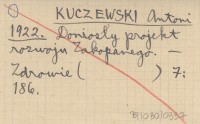 KUCZEWSKI Antoni
1922. Doniosły projekt
rozwoju Zakopanego. —
Zdrowie ( ) 7:
186.
B(1030)0337